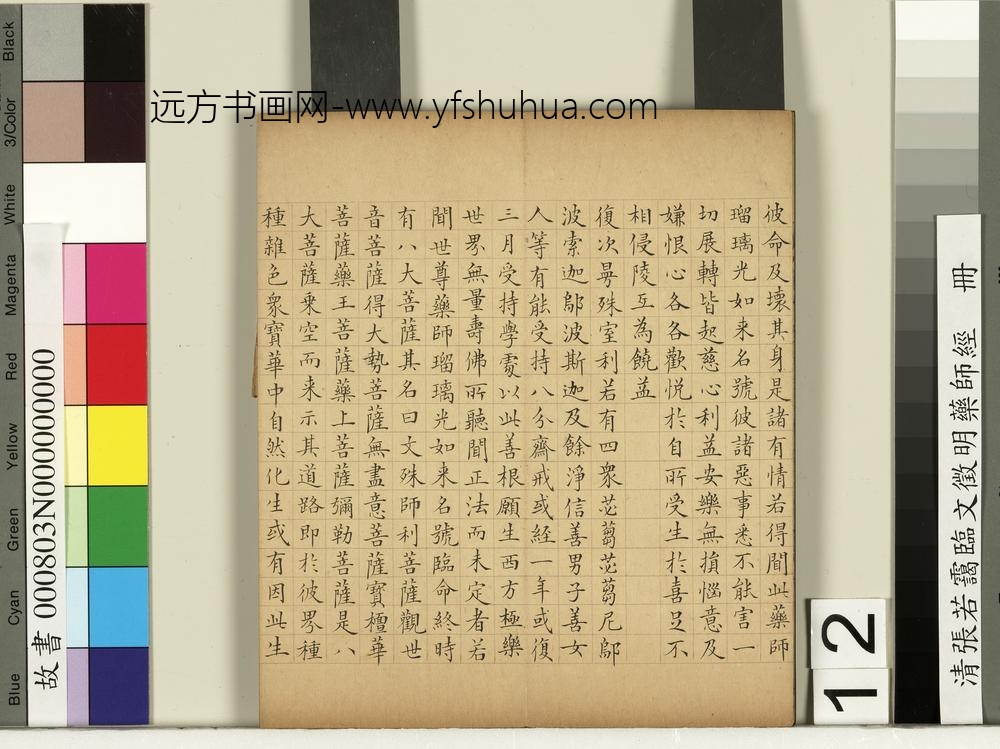 远方书画网-www.yfshuhua.com
彼命及壞其身是諸有情若得聞此藥師
瑠璃光如来名號彼諸惡事悉不能害一
切展轉皆起慈心利益安樂無損惱意及
嫌恨心各各歡悅於自所受生於喜足不
相侵陵互為饒益
復次曼殊室利若有四衆苾蒭苾蒭尼鄔
波索迦鄔波斯迦及餘淨信善男子善女
人等有能受持八分齋戒或經一年或復
三月受持學處以此善根願生西方極樂
世界無量壽佛所聽聞正法而未定者若
聞世尊藥師瑠璃光如来名號臨命終時
有八大菩薩其名曰文殊師利菩薩觀世
音菩薩得大勢菩薩無盡意菩薩寶檀華
菩薩藥王菩薩藥上菩薩彌勒菩薩是八
大菩薩乘空而来示其道路即於彼界種
種雜色衆寶華中自然化生或有因此生
清張若靄臨文徵明藥師經 冊
12
故書 000803N000000000
Black
3/Color
White
Magenta
Red
Yellow
Green
Cyan
Blue